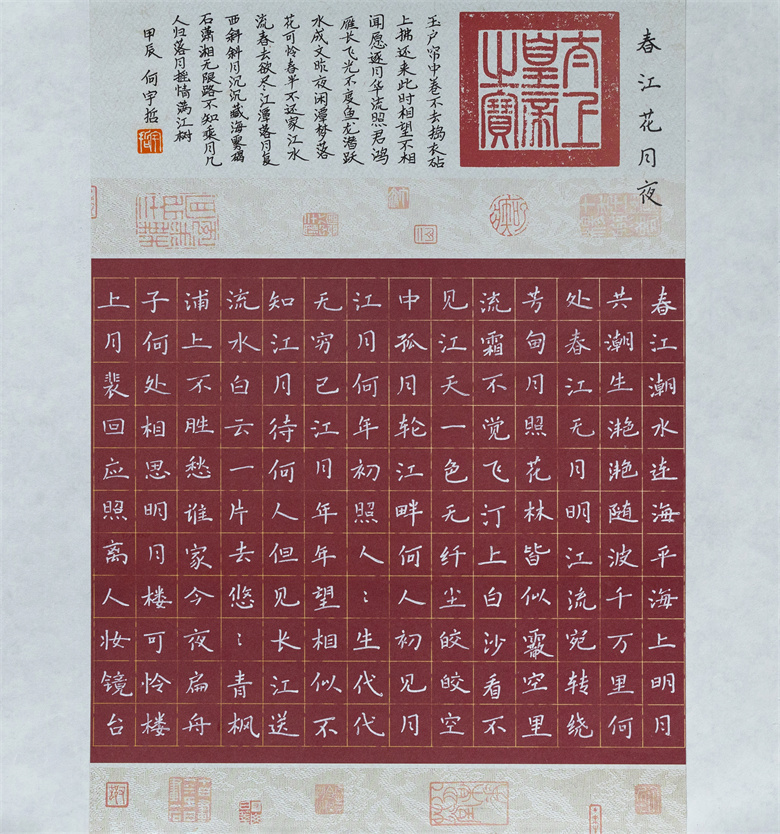 春江花月夜
太上
皇帝
之寶
春江潮水连海平海上明月
共潮生滟滟随波千万里何
处春江无月明江流宛转绕
芳甸月照花林皆似霰空里
流霜不觉飞汀上白沙看不
见江天一色无纤尘皎皎空
中孤月轮江畔何人初见月
江月何年初照人：生代代
无穷已江月年年望相似不
知江月待何人但见长江送
流水白云一片去悠：青枫
浦上不胜愁谁家今夜扁舟
子何处相思明月楼可怜楼
上月裴回应照离人妆镜台
玉户帘中卷不去捣衣砧
上拂还来此时相望不相
闻愿逐月华流照君鸿
雁长飞光不度鱼龙潜跃
水成文昨夜闲潭梦落
花可怜春半不还家江水
流春去欲尽江潭落月复
西斜斜月沉沉藏海雾碣
石潇湘无限路不知乘月几
人归落月摇情满江树
甲辰 何宇哲